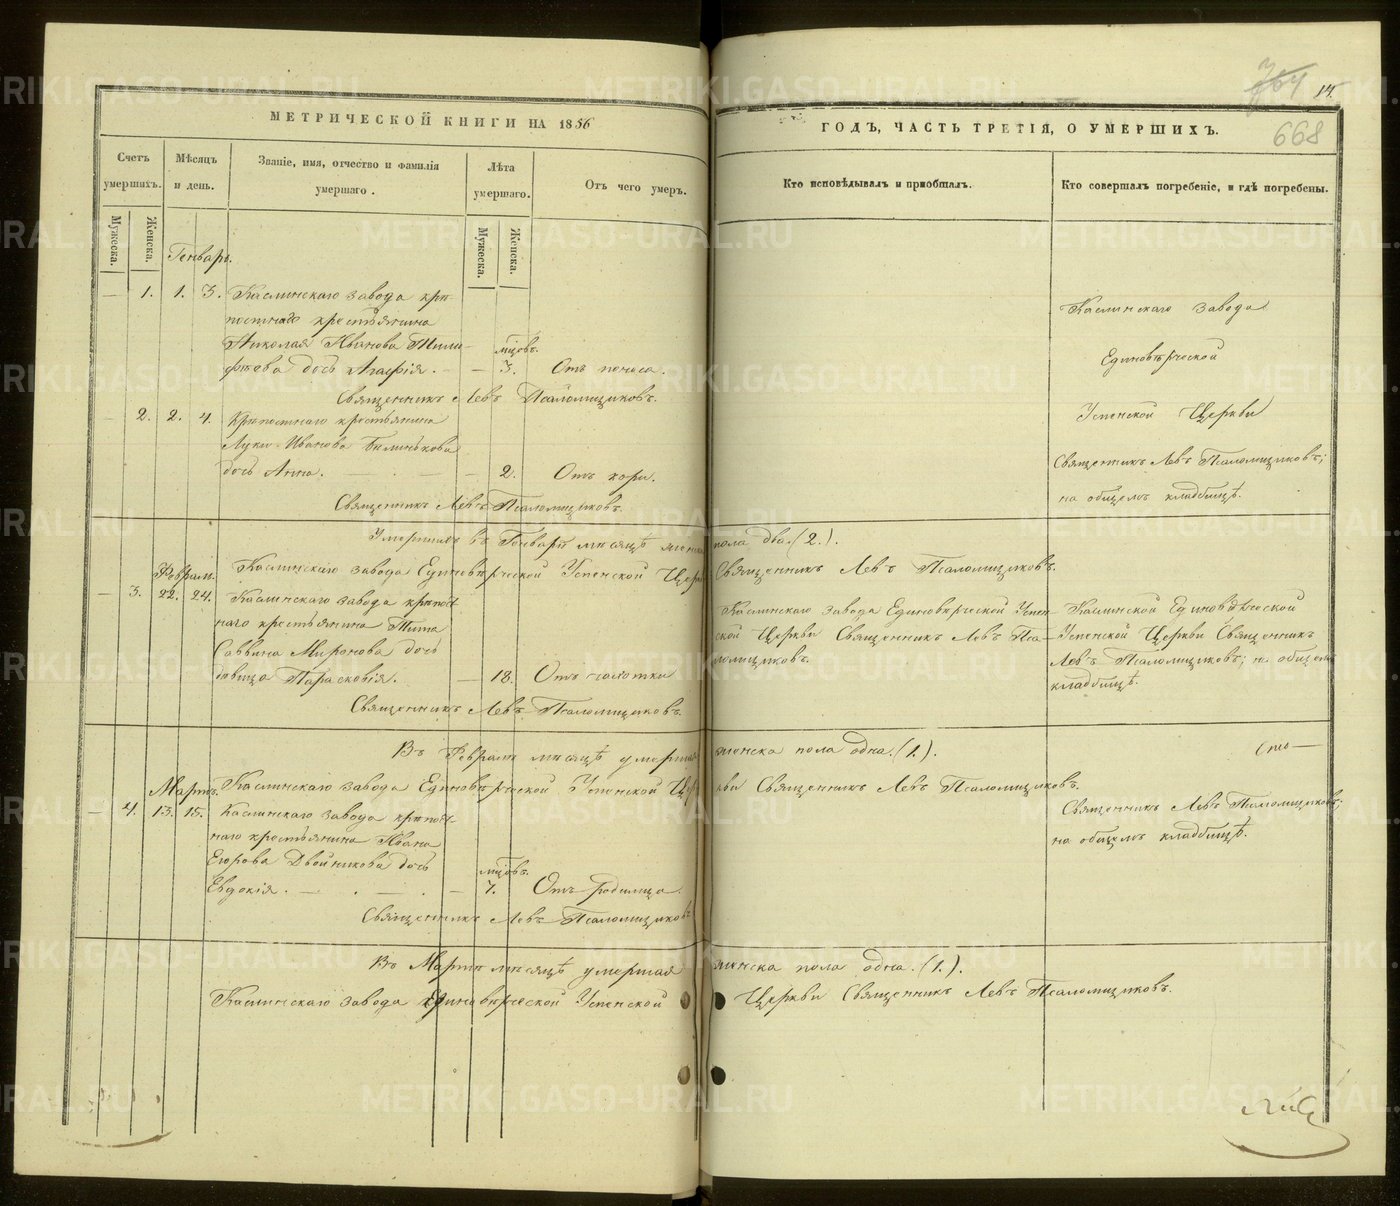 МЕТРИЧЕСКОЙ КНИГИ НА 1856
Счетъ умершихъ.
Мужеска.
Женска.
Мѣсяцъ и день.
Званіе, имя, отчество и фамилія умершаго.
Лѣта умершаго.
Мужеска.
Женска.
Отъ чего умеръ.
Генварь.
— 1. 1. 3. Каслинскаго завода крѣ-
постнаго крестьянина
Николая Иванова Тимо-
фѣева дочь Агафія. — — мцовъ. 3. Отъ поноса.
Священникъ Левъ Псаломщиковъ.
— 2. 2. 4. Крѣпостнаго крестьянина
Луки Иванова
дочь Анна. — — 2. Отъ кори.
Священникъ Левъ Псаломщиковъ.
Умершихъ въ Генварѣ мѣсяцѣ женска
Каслинскаго завода Единовѣрческой Успенской Церк
Февраль.
— 3. 22. 24. Каслинскаго завода крѣпост-
наго крестьянина Тита
Саввина Миронова дочь
давица Парасковія. — 18. Отъ чахотки
Священникъ Левъ Псаломщиковъ.
Въ Февралѣ мѣсяцѣ умершая
Каслинскаго завода Единовѣрческой Успенской Цер
Мартъ.
— 4. 13. 15. Каслинскаго завода крѣпост-
наго крестьянина Ивана
Егорова Двойникова дочь
Евдокія. — . — . — мцовъ. 7. Отъ родимца.
Священникъ Левъ Псаломщиковъ
Въ Мартѣ мѣсяцѣ умершая
Каслинскаго завода Единовѣрческой Успенской
764 14.
668
ГОДЪ, ЧАСТЬ ТРЕТІЯ, О УМЕРШИХЪ.
Кто исповѣдывалъ и пріобщалъ.
Кто совершалъ погребеніе, и гдѣ погребены.
Каслинскаго завода
Единовѣрческой
Успенской Церкви
Священникъ Левъ Псаломщиковъ;
на общемъ кладбищѣ.
пола два. (2.).
Священникъ Левъ Псаломщиковъ.
Каслинскаго завода Единовѣрческой Успен-
ской Церкви Священникъ Левъ Пса-
ломщиковъ.
Каслинской Единовѣрческой
Успенской Церкви Священникъ
Левъ Псаломщиковъ; на общемъ
кладбищѣ.
женска пола одна. (1.).
кви Священникъ Левъ Псаломщиковъ.
Священникъ Левъ Псаломщиковъ;
на общемъ кладбищѣ.
женска пола одна. (1.).
Церкви Священникъ Левъ Псаломщиковъ.
METRIKI.GASO-URAL.RU